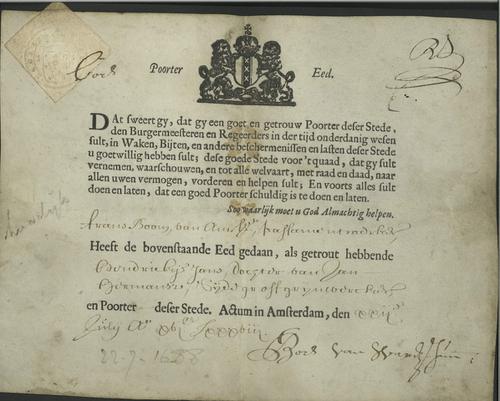 Poorter Eed.
DAt sweert gy, dat gy een goet en getrouw Poorter deser Stede,
den Burgermeesteren en Regeerders in der tijd onderdanig wesen
sult, in Waken, Bijten, en andere beschermenissen en lasten deser Stede
u goetwillig hebben sult; dese goede Stede voor 't quaad, dat gy sult
vernemen, waarschouwen, en tot alle welvaart, met raad en daad, naar
allen uwen vermogen, vorderen en helpen sult; En voorts alles sult
doen en laten, dat een goed Poorter schuldig is te doen en laten.
Soo waarlijk moet u God Almachtig helpen.
frans Boom van
Heeft de bovenstaande Eed gedaan, als getrout hebbende
Hendrickje Jans dochter van Jan
Hermansz
en Poorter deser Stede. Actum in Amsterdam, den xxij
July Ao
22-7-1688